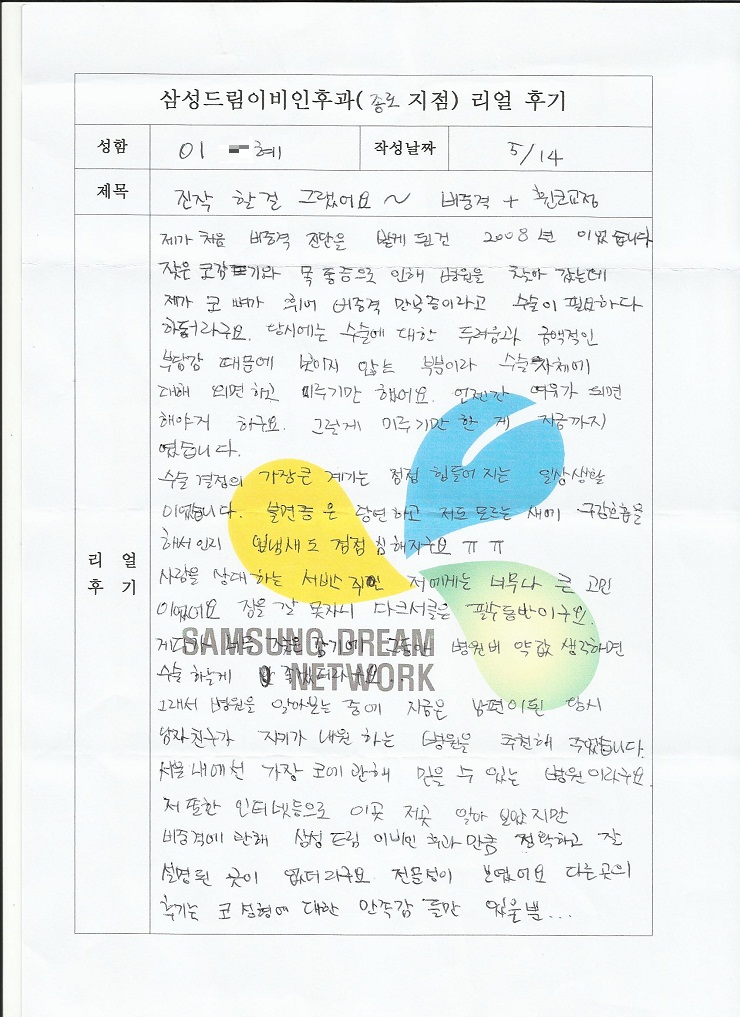 삼성드림이비인후과(종로 지점) 리얼 후기
성함 이 혜 작성날짜 5/14
제목 진작 할걸 그랬어요~ 비중격 + 휜코교정
리얼 후기
제가 처음 비중격 진단을 받게 된건 2008년 이었습니다
잦은 코감기와 목 통증으로 인해 병원을 찾아 갔는데
제가 코 뼈가 휘어 비중격 만곡증이라고 수술이 필요하다
하더라구요. 당시에는 수술에 대한 두려움과 금액적인
부담감 때문에 보이지 않는 부분이라 수술자체에
대해 외면하고 미루기만 했어요. 언젠간 여유가 되면
해야지 하구요. 그렇게 미루기만 한 게 지금까지
였습니다.
수술 결정의 가장큰 계기는 점점 힘들어 지는 일상생활
이였습니다. 불면증은 당연하고 저도 모르는 새에 구강호흡을
해서인지 입냄새도 점점 심해지구요 ㅠㅠ
사람을 상대하는 서비스 직인 저에게는 너무나 큰 고민
이였어요 잠을 잘 못자니 다크서클은 필수동반이구요.
게다가 너무 잦은 감기에 그동안 병원비 약값 생각하면
수술 하는게 더라구요..
SAMSUNG DREAM
NETWORK
그래서 병원을 알아보는 중에 지금은 남편이된 당시
남자친구가 자기가 내원 하는 병원을 추천해 주었습니다.
서울 내에선 가장 코에 관해 믿을 수 있는 병원이라구요
저 또한 인터넷등으로 이곳 저곳 알아 보았지만
비중격에 관해 삼성드림 이비인 후과만큼 정확하고 잘
설명된 곳이 없더라구요 전문성이 보였어요 다른곳의
후기는 코 성형에 대한 만족감 들만 있을뿐...